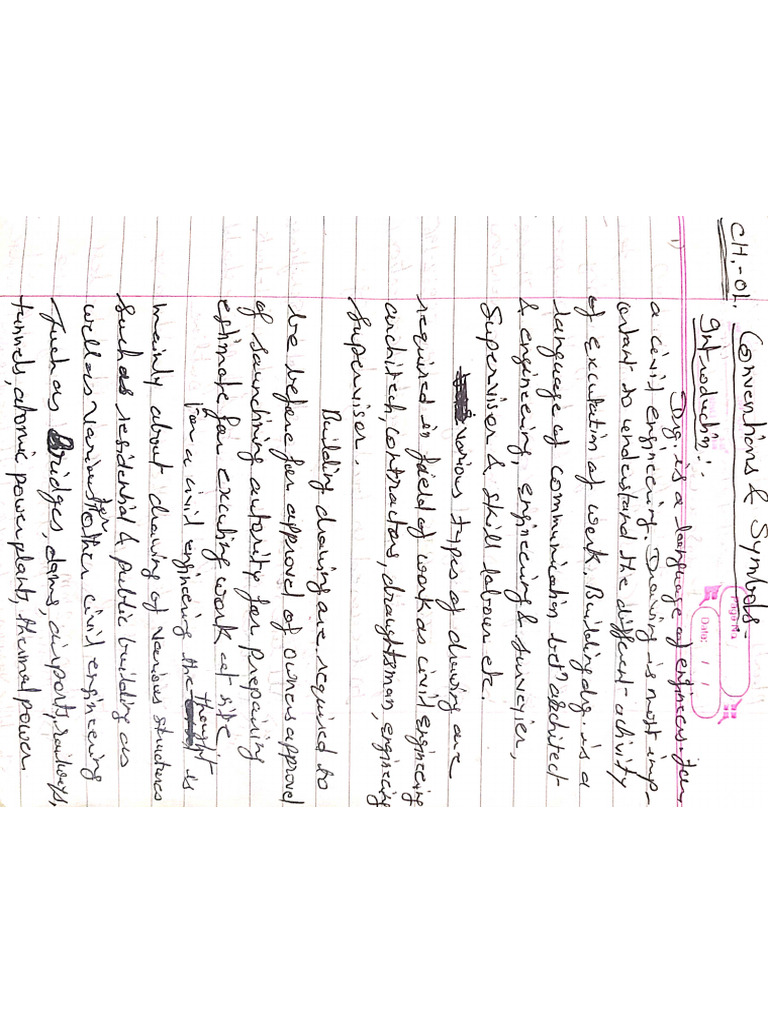 CH.-01. Conventions & Symbols-
Page No.
Date: / /
1) Introduction:-
Drg. is a language of engineers for
a civil engineering. Drawing is most imp-
ortant to understand the different activity
of excutation of work. Building drg. is a
language of communication betn architect
& engineering, engineering & surveyier,
Supervisor & skill labour etc.
various types of drawing are
required in field of work as civil engineering
architech, contractors, draughtsman, engineering
supervisor.
Building drawing are required to
be before for approvel of owner approvel
of sanctining autority for prepaining
estimate for excuting work at site
For a civil engineering the thought is
mainly about drawing of various structures
Such as residential & public building as
well as various other civil engineering
Such as Bridges, dams, airports, railways,
tunnels, atomic power plants, thermal power